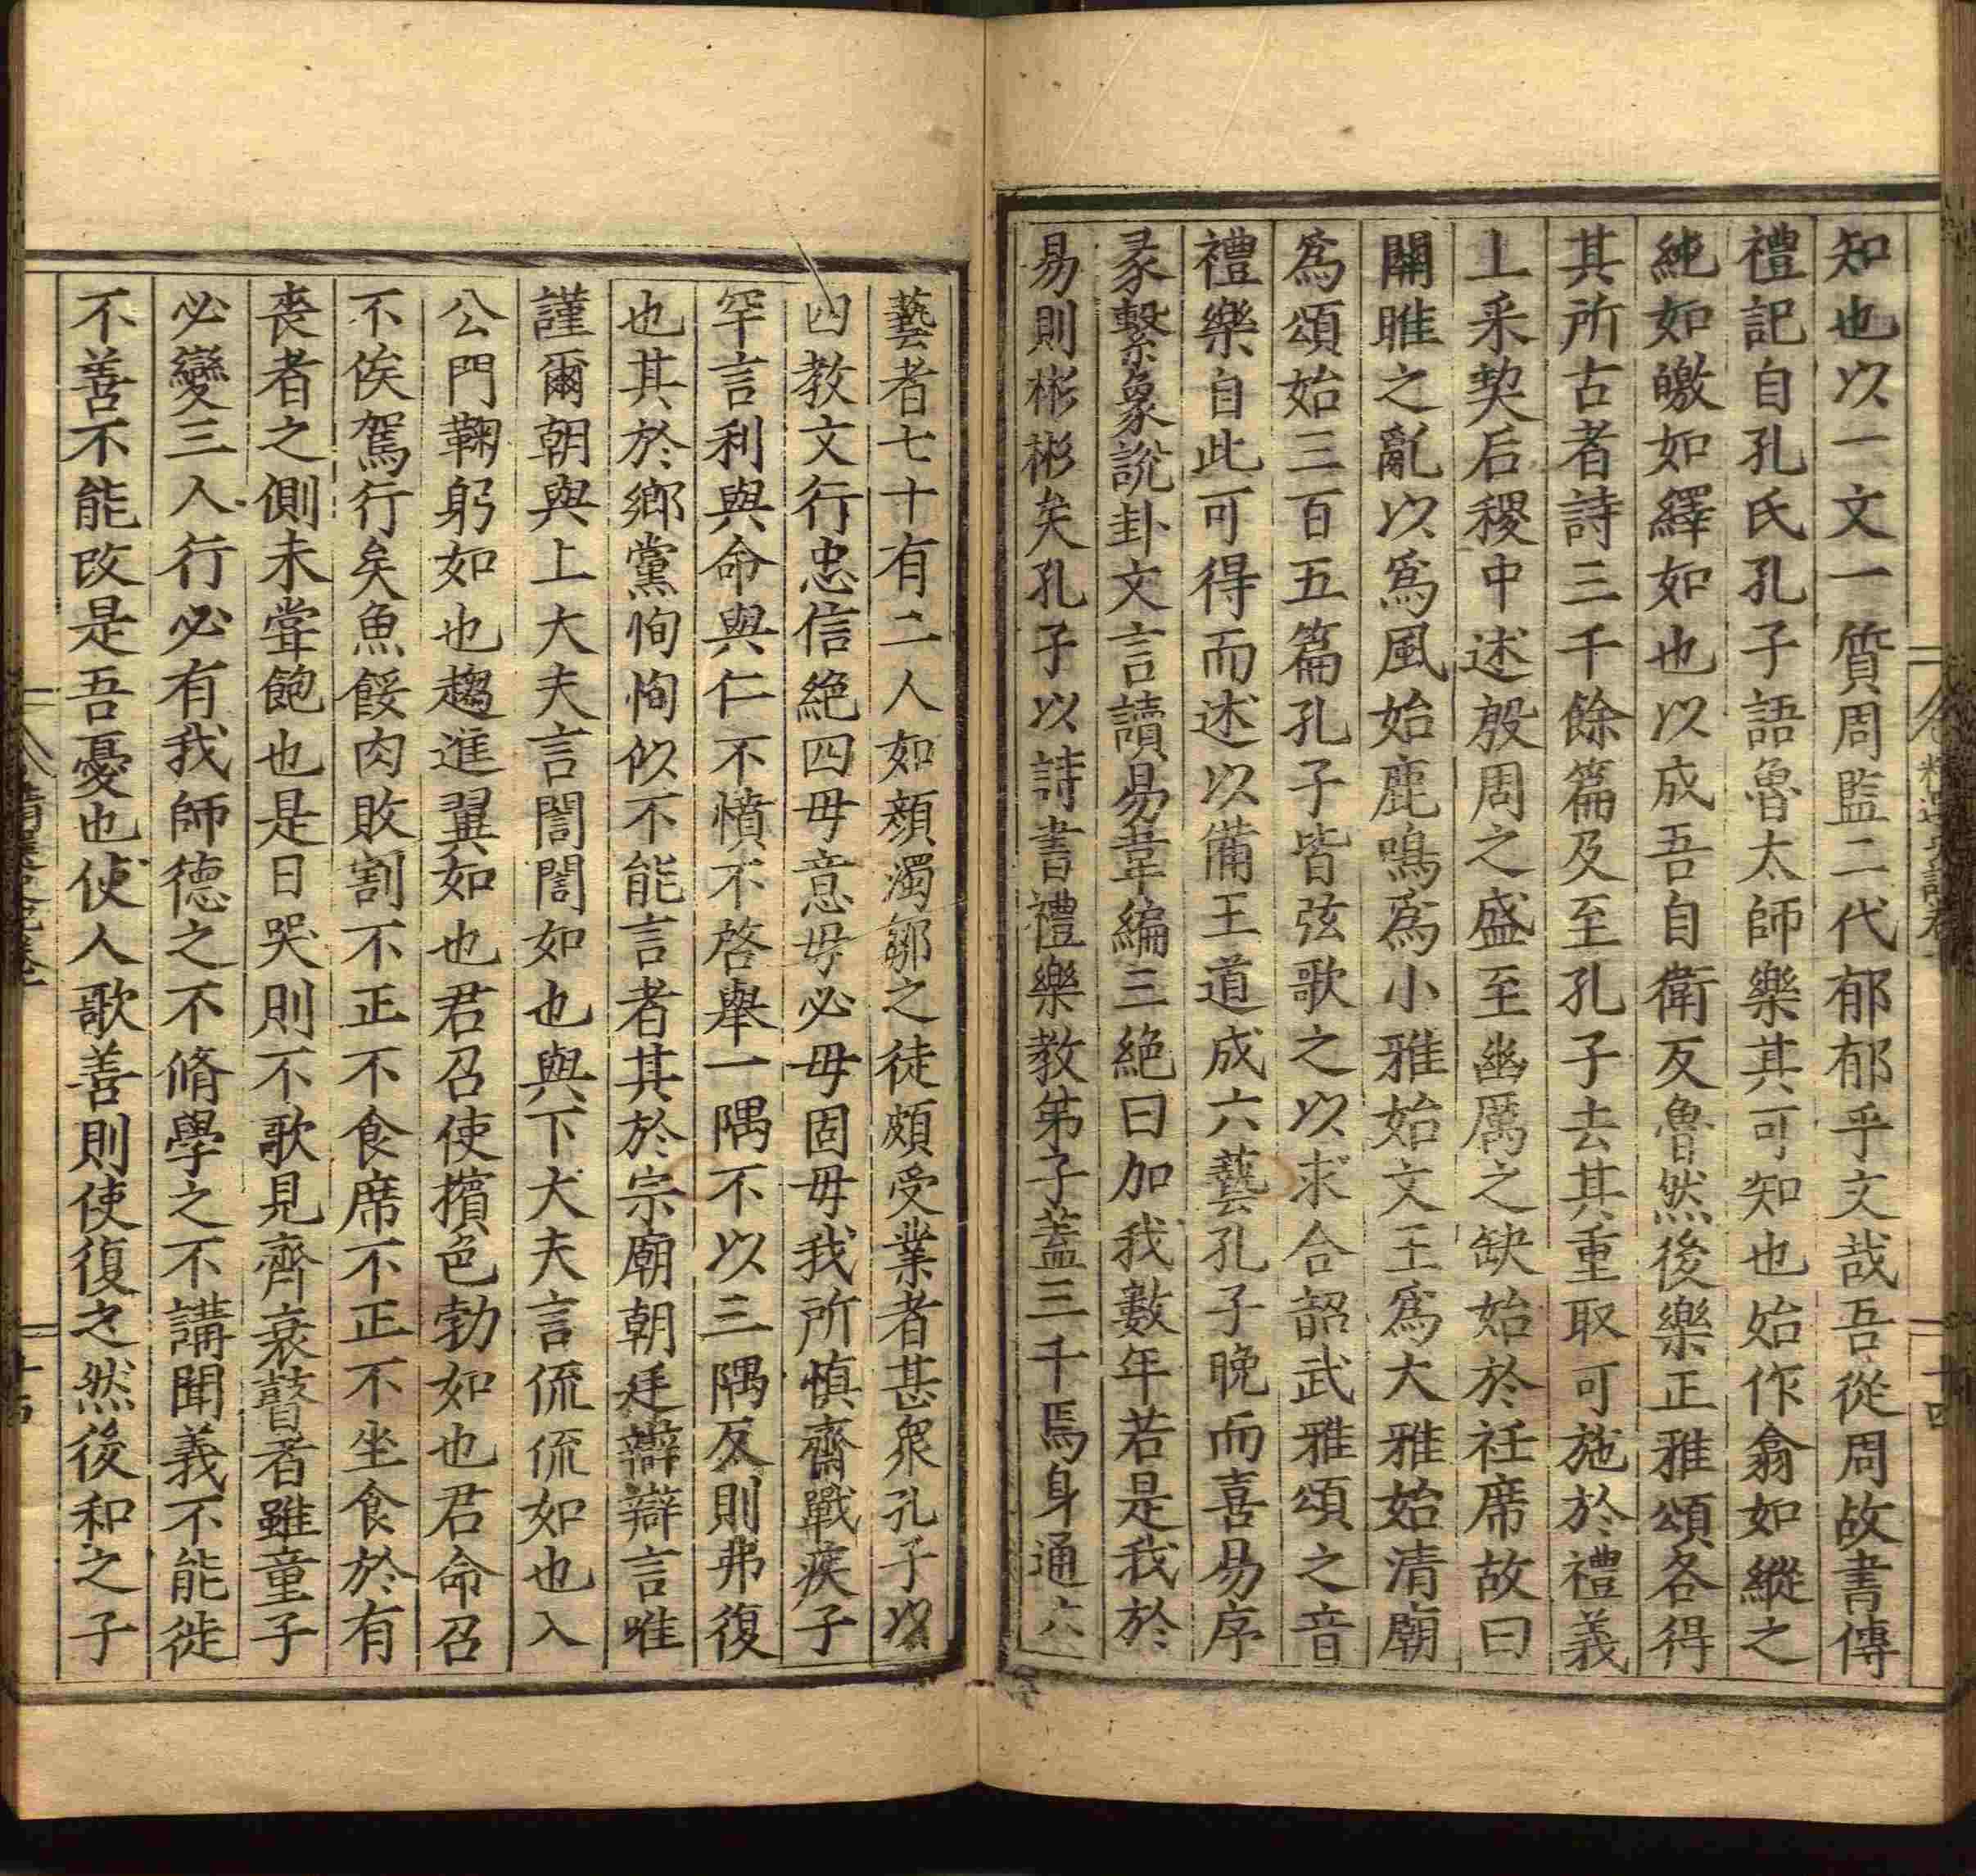 知也以一文一質周監二代郁郁乎文哉吾從周故書傳
禮記自孔氏孔子語魯太師樂其可知也始作翕如縱之
純如皦如繹如也以成吾自衛反魯然後樂正雅頌各得
其所古者詩三千餘篇及至孔子去其重取可施於禮義
上采契后稷中述殷周之盛至幽厲之缺始於衽席故曰
關雎之亂以爲風始鹿鳴爲小雅始文王爲大雅始清廟
爲頌始三百五篇孔子皆弦歌之以求合韶武雅頌之音
禮樂自此可得而述以備王道成六藝孔子晚而喜易序
彖繫象說卦文言讀易韋編三絕曰加我數年若是我於
易則彬彬矣孔子以詩書禮樂教弟子蓋三千焉身通六
藝者七十有二人如顏濁鄒之徒頗受業者甚衆孔子以
四教文行忠信絕四毋意毋必毋固毋我所慎齋戰疾子
罕言利與命與仁不憤不啓舉一隅不以三隅反則弗復
也其於鄉黨恂恂似不能言者其於宗廟朝廷辯辯言唯
謹爾朝與上大夫言誾誾如也與下大夫言侃侃如也入
公門鞠躬如也趨進翼如也君召使擯色勃如也君命召
不俟駕行矣魚餒肉敗割不正不食席不正不坐食於有
喪者之側未嘗飽也是日哭則不歌見齊衰瞽者雖童子
必變三人行必有我師德之不脩學之不講聞義不能徙
不善不能改是吾憂也使人歌善則使復之然後和之子